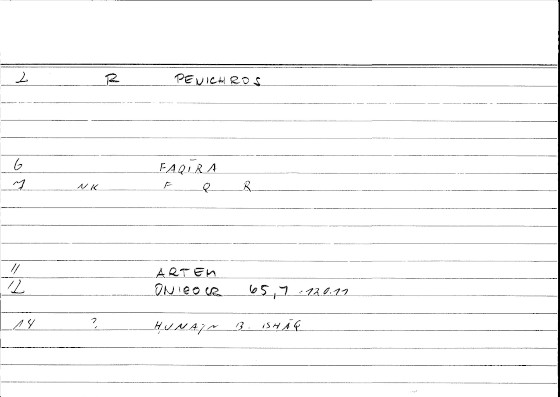 2 R PENICHROS
6 FAQĪRA
7 NK F Q R
11 ARTEM
12 ONIEOCR 65,7 - 120.11
14 ? ḤUNAJN B. ISḤĀQ